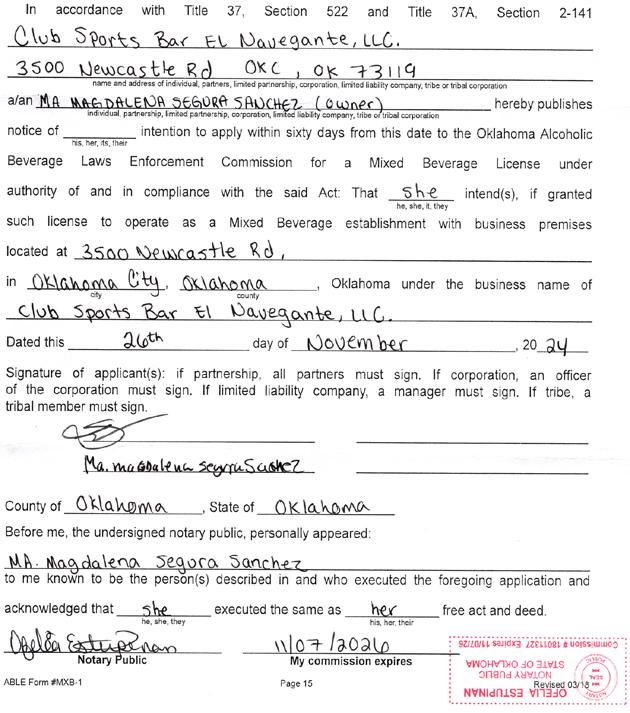 In accordance with Title 37, Section 522 and Title 37A, Section 2-141
Club Sports Bar El Navegante, LLC.
3500 Newcastle Rd OKC, OK 73119
name and address of individual, partners, limited partnership, corporation, limited liability company, tribe or tribal corporation
a/an MA MAGDALENA SEGURA SANCHEZ (owner) hereby publishes
individual, partnership, limited partnership, corporation, limited liability company, tribe or tribal corporation
notice of intention to apply within sixty days from this date to the Oklahoma Alcoholic
his, her, its, their
Beverage Laws Enforcement Commission for a Mixed Beverage License under
authority of and in compliance with the said Act: That she intend(s), if granted
he, she, it, they
such license to operate as a Mixed Beverage establishment with business premises
located at 3500 Newcastle Rd,
in Oklahoma City, Oklahoma, Oklahoma under the business name of
city county
Club Sports Bar El Navegante, LLC.
Dated this 26th day of November, 2024
Signature of applicant(s): if partnership, all partners must sign. If corporation, an officer
of the corporation must sign. If limited liability company, a manager must sign. If tribe, a
tribal member must sign.
Ma. magdalena segura Sanchez
County of Oklahoma, State of Oklahoma
Before me, the undersigned notary public, personally appeared:
MA. Magdalena Segura Sanchez
to me known to be the person(s) described in and who executed the foregoing application and
acknowledged that she executed the same as her free act and deed.
he, she, they his, her, their
Ofelia Estupinan 11/07/2026
Notary Public My commission expires
ABLE Form #MXB-1 Page 15 Revised 03/18
OFELIA ESTUPINAN
NOTARY PUBLIC
STATE OF OKLAHOMA
Commission # 18011327 Expires 11/07/26